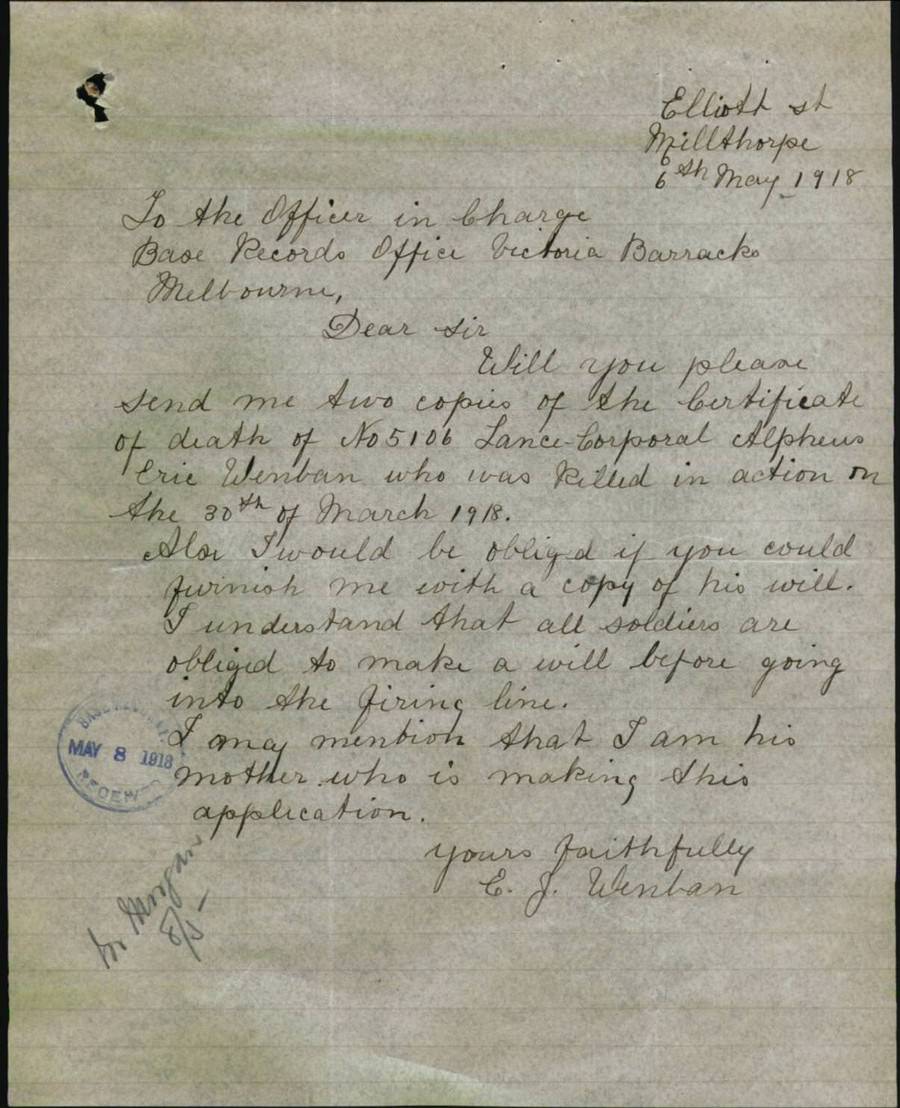 Elliott st
Millthorpe
6th May 1918
To the Officer in Charge
Base Records Office Victoria Barracks
Melbourne,
Dear Sir
Will you please
send me two copies of the Certificate
of death of No 5106 Lance-Corporal Alpheus
Eric Wenban who was killed in action on
the 30th of March 1918.
Also I would be obliged if you could
furnish me with a copy of his will.
I understand that all soldiers are
obliged to make a will before going
into the firing line.
I may mention that I am his
mother who is making this
application.
yours faithfully
E. J. Wenban
BASE RECORDS
MAY 8 1918
RECEIVED